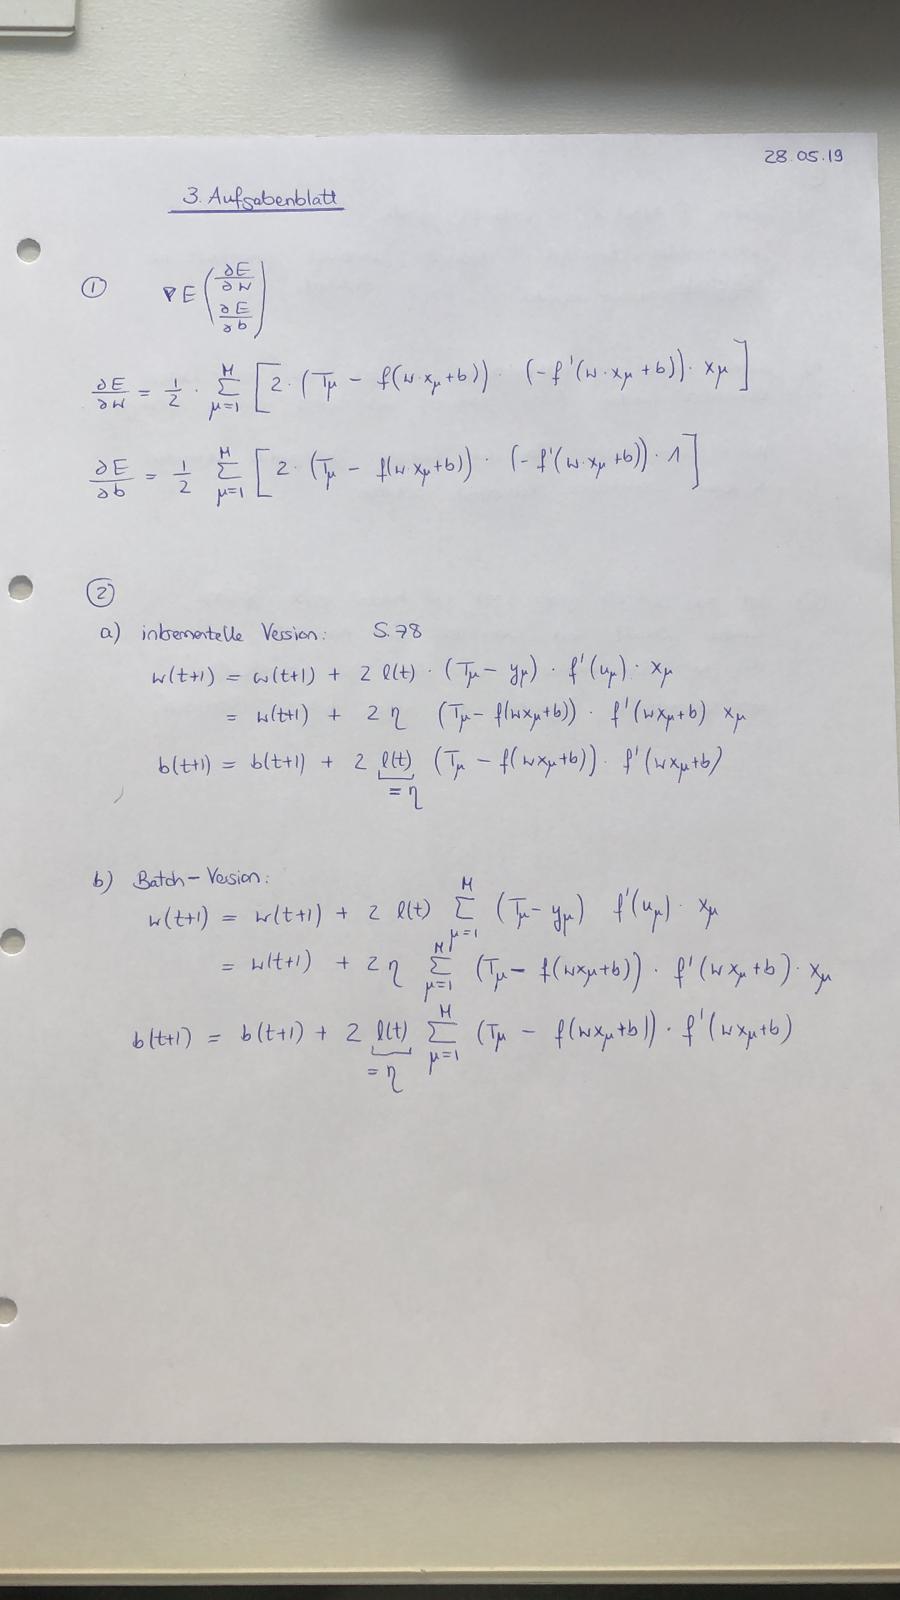 28.05.19
3. Aufgabenblatt
① ∇E (∂E/∂w ∂E/∂b)
∂E/∂w = 1/2 · Σ_{μ=1}^{M} [2 · (Tμ - f(w·xμ+b)) · (-f'(w·xμ+b)) · xμ]
∂E/∂b = 1/2 Σ_{μ=1}^{M} [2 · (Tμ - f(w·xμ+b)) · (-f'(w·xμ+b)) · 1]
②
a) inkrementelle Version: S.78
w(t+1) = w(t+1) + 2 l(t) · (Tμ - yμ) · f'(uμ) · xμ
= w(t+1) + 2 η (Tμ - f(wxμ+b)) · f'(wxμ+b) xμ
b(t+1) = b(t+1) + 2 l(t) (Tμ - f(wxμ+b)) · f'(wxμ+b)
= η
b) Batch-Version:
w(t+1) = w(t+1) + 2 l(t) Σ_{μ=1}^{M} (Tμ - yμ) f'(uμ) · xμ
= w(t+1) + 2 η Σ_{μ=1}^{M} (Tμ - f(wxμ+b)) · f'(wxμ+b) · xμ
b(t+1) = b(t+1) + 2 l(t) Σ_{μ=1}^{M} (Tμ - f(wxμ+b)) · f'(wxμ+b)
= η